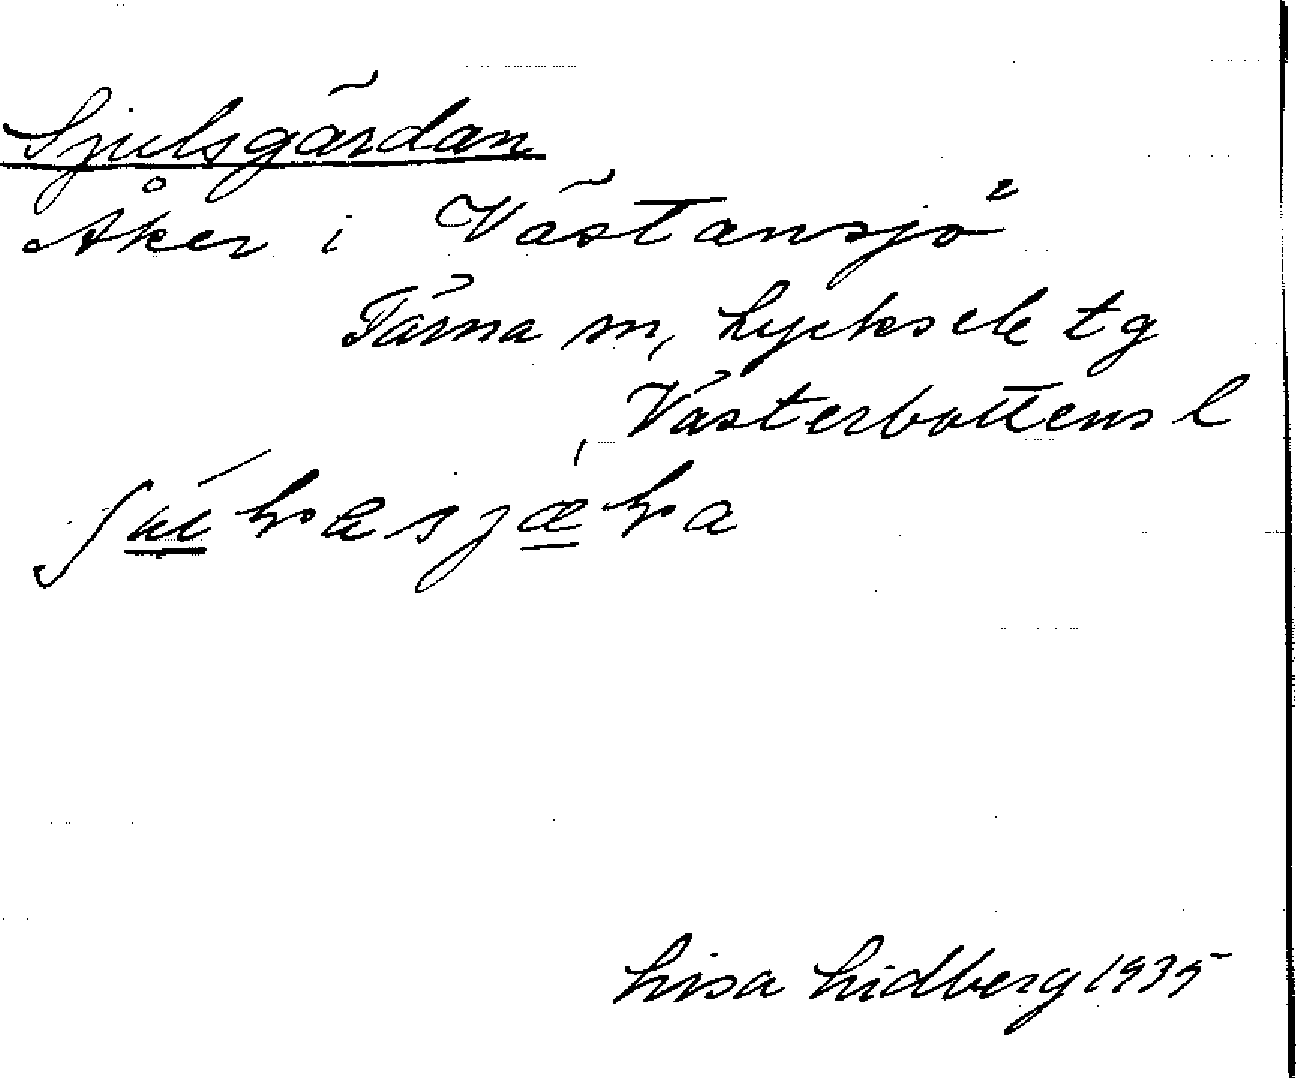 Sjulsgärdan
Åker i Västansjö
Tärna sn, Lycksele tg
Västerbottens l
Lisa Lidberg 1935